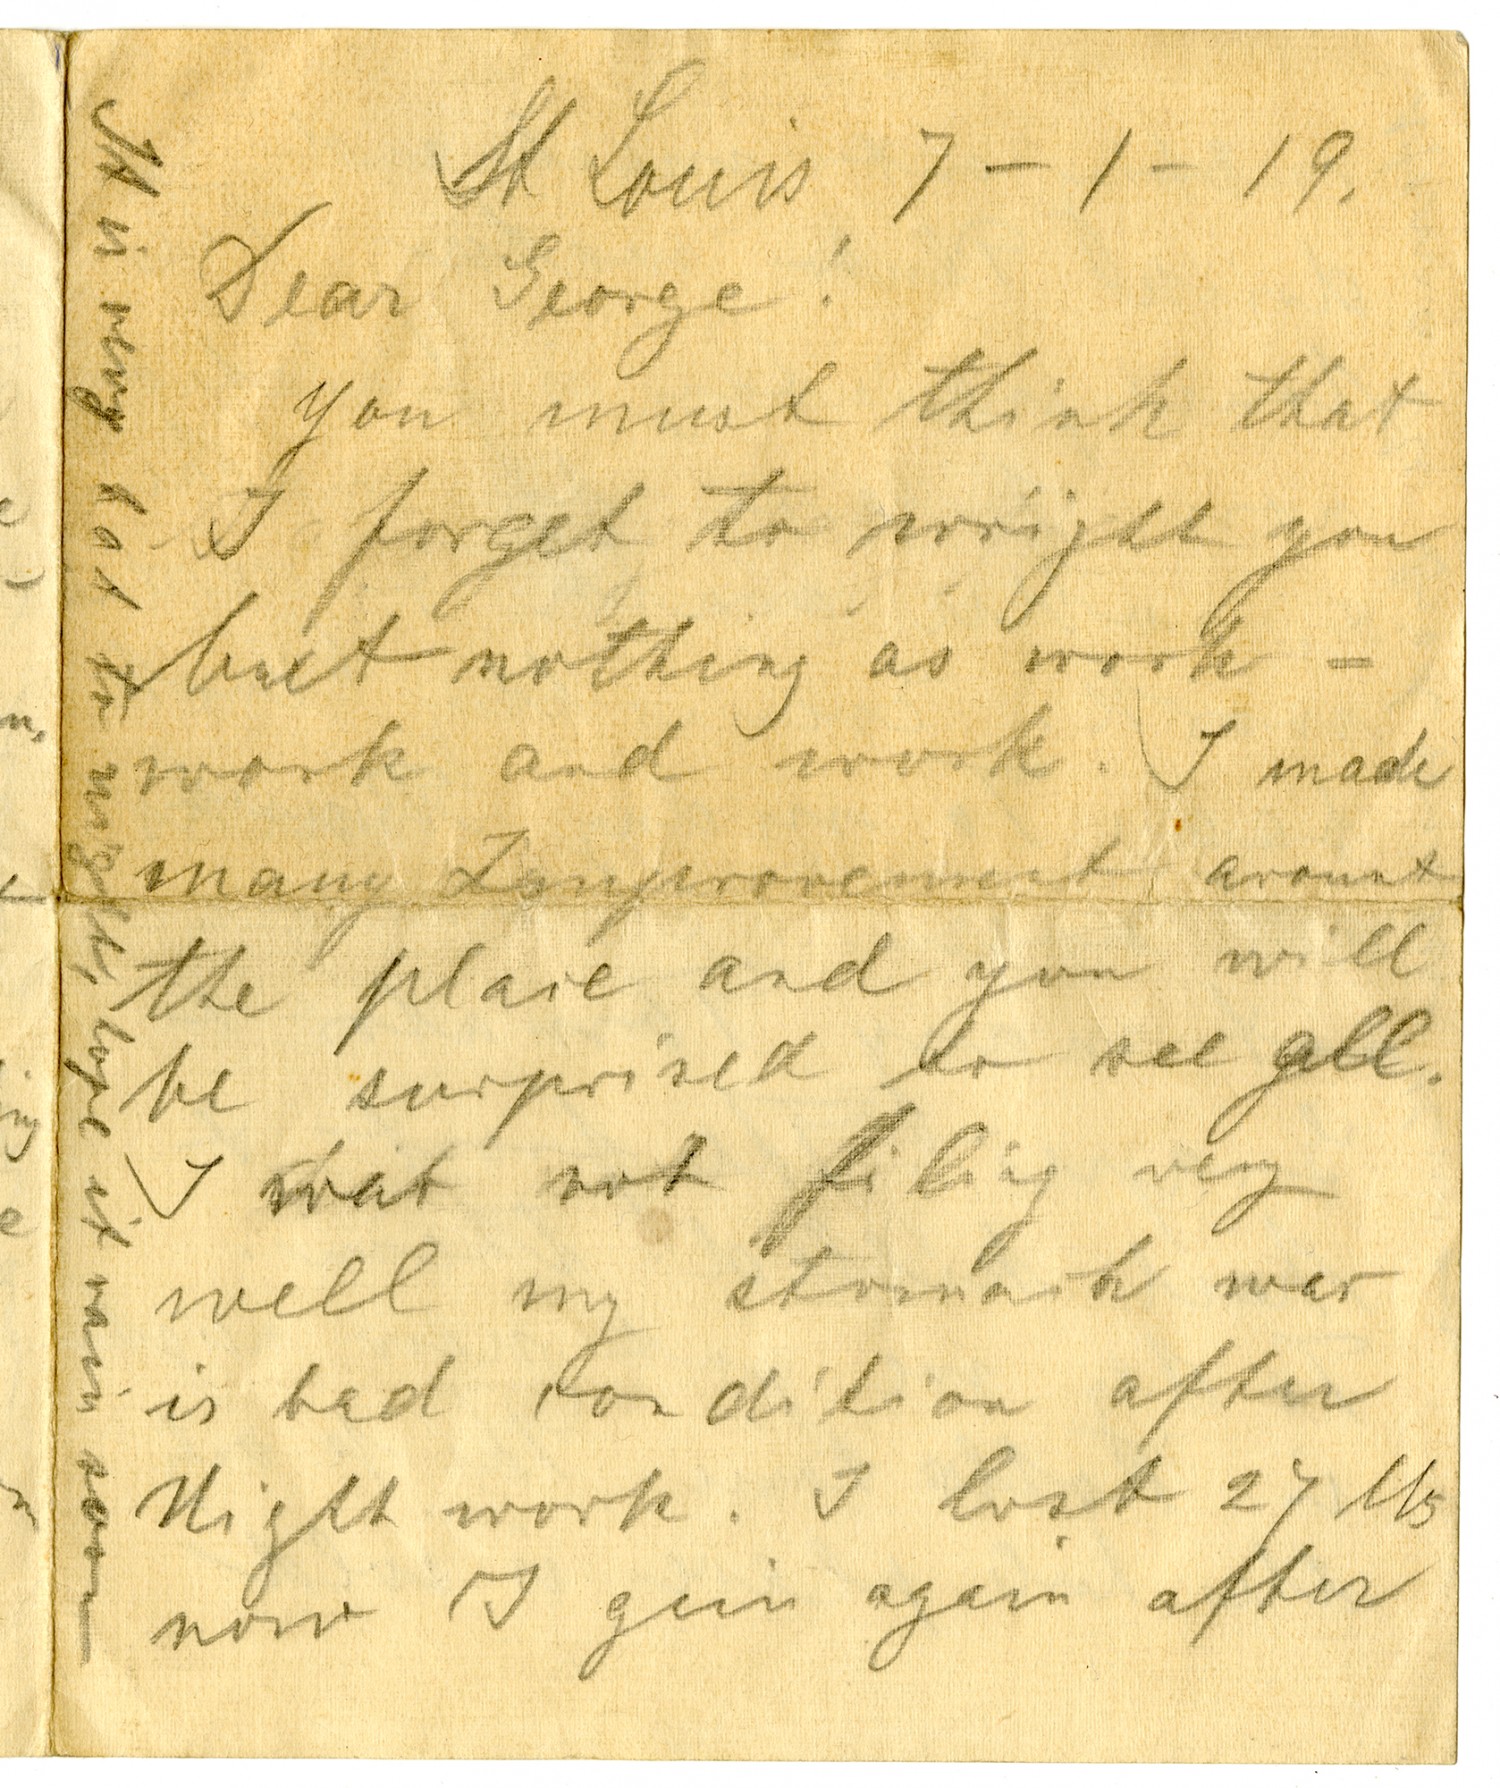 St Louis 7-1-19.
Dear George!
you must think that
I forget to wright you
but nothing as work -
work and work. I made
many Improvement arount
the place and you will
be surprised to see all.
I wat not filing very
well my stomach war
is bad condition after
Night work. I lost 27 lbs
now I gein again after
It is very hot to night, hope it rain soon